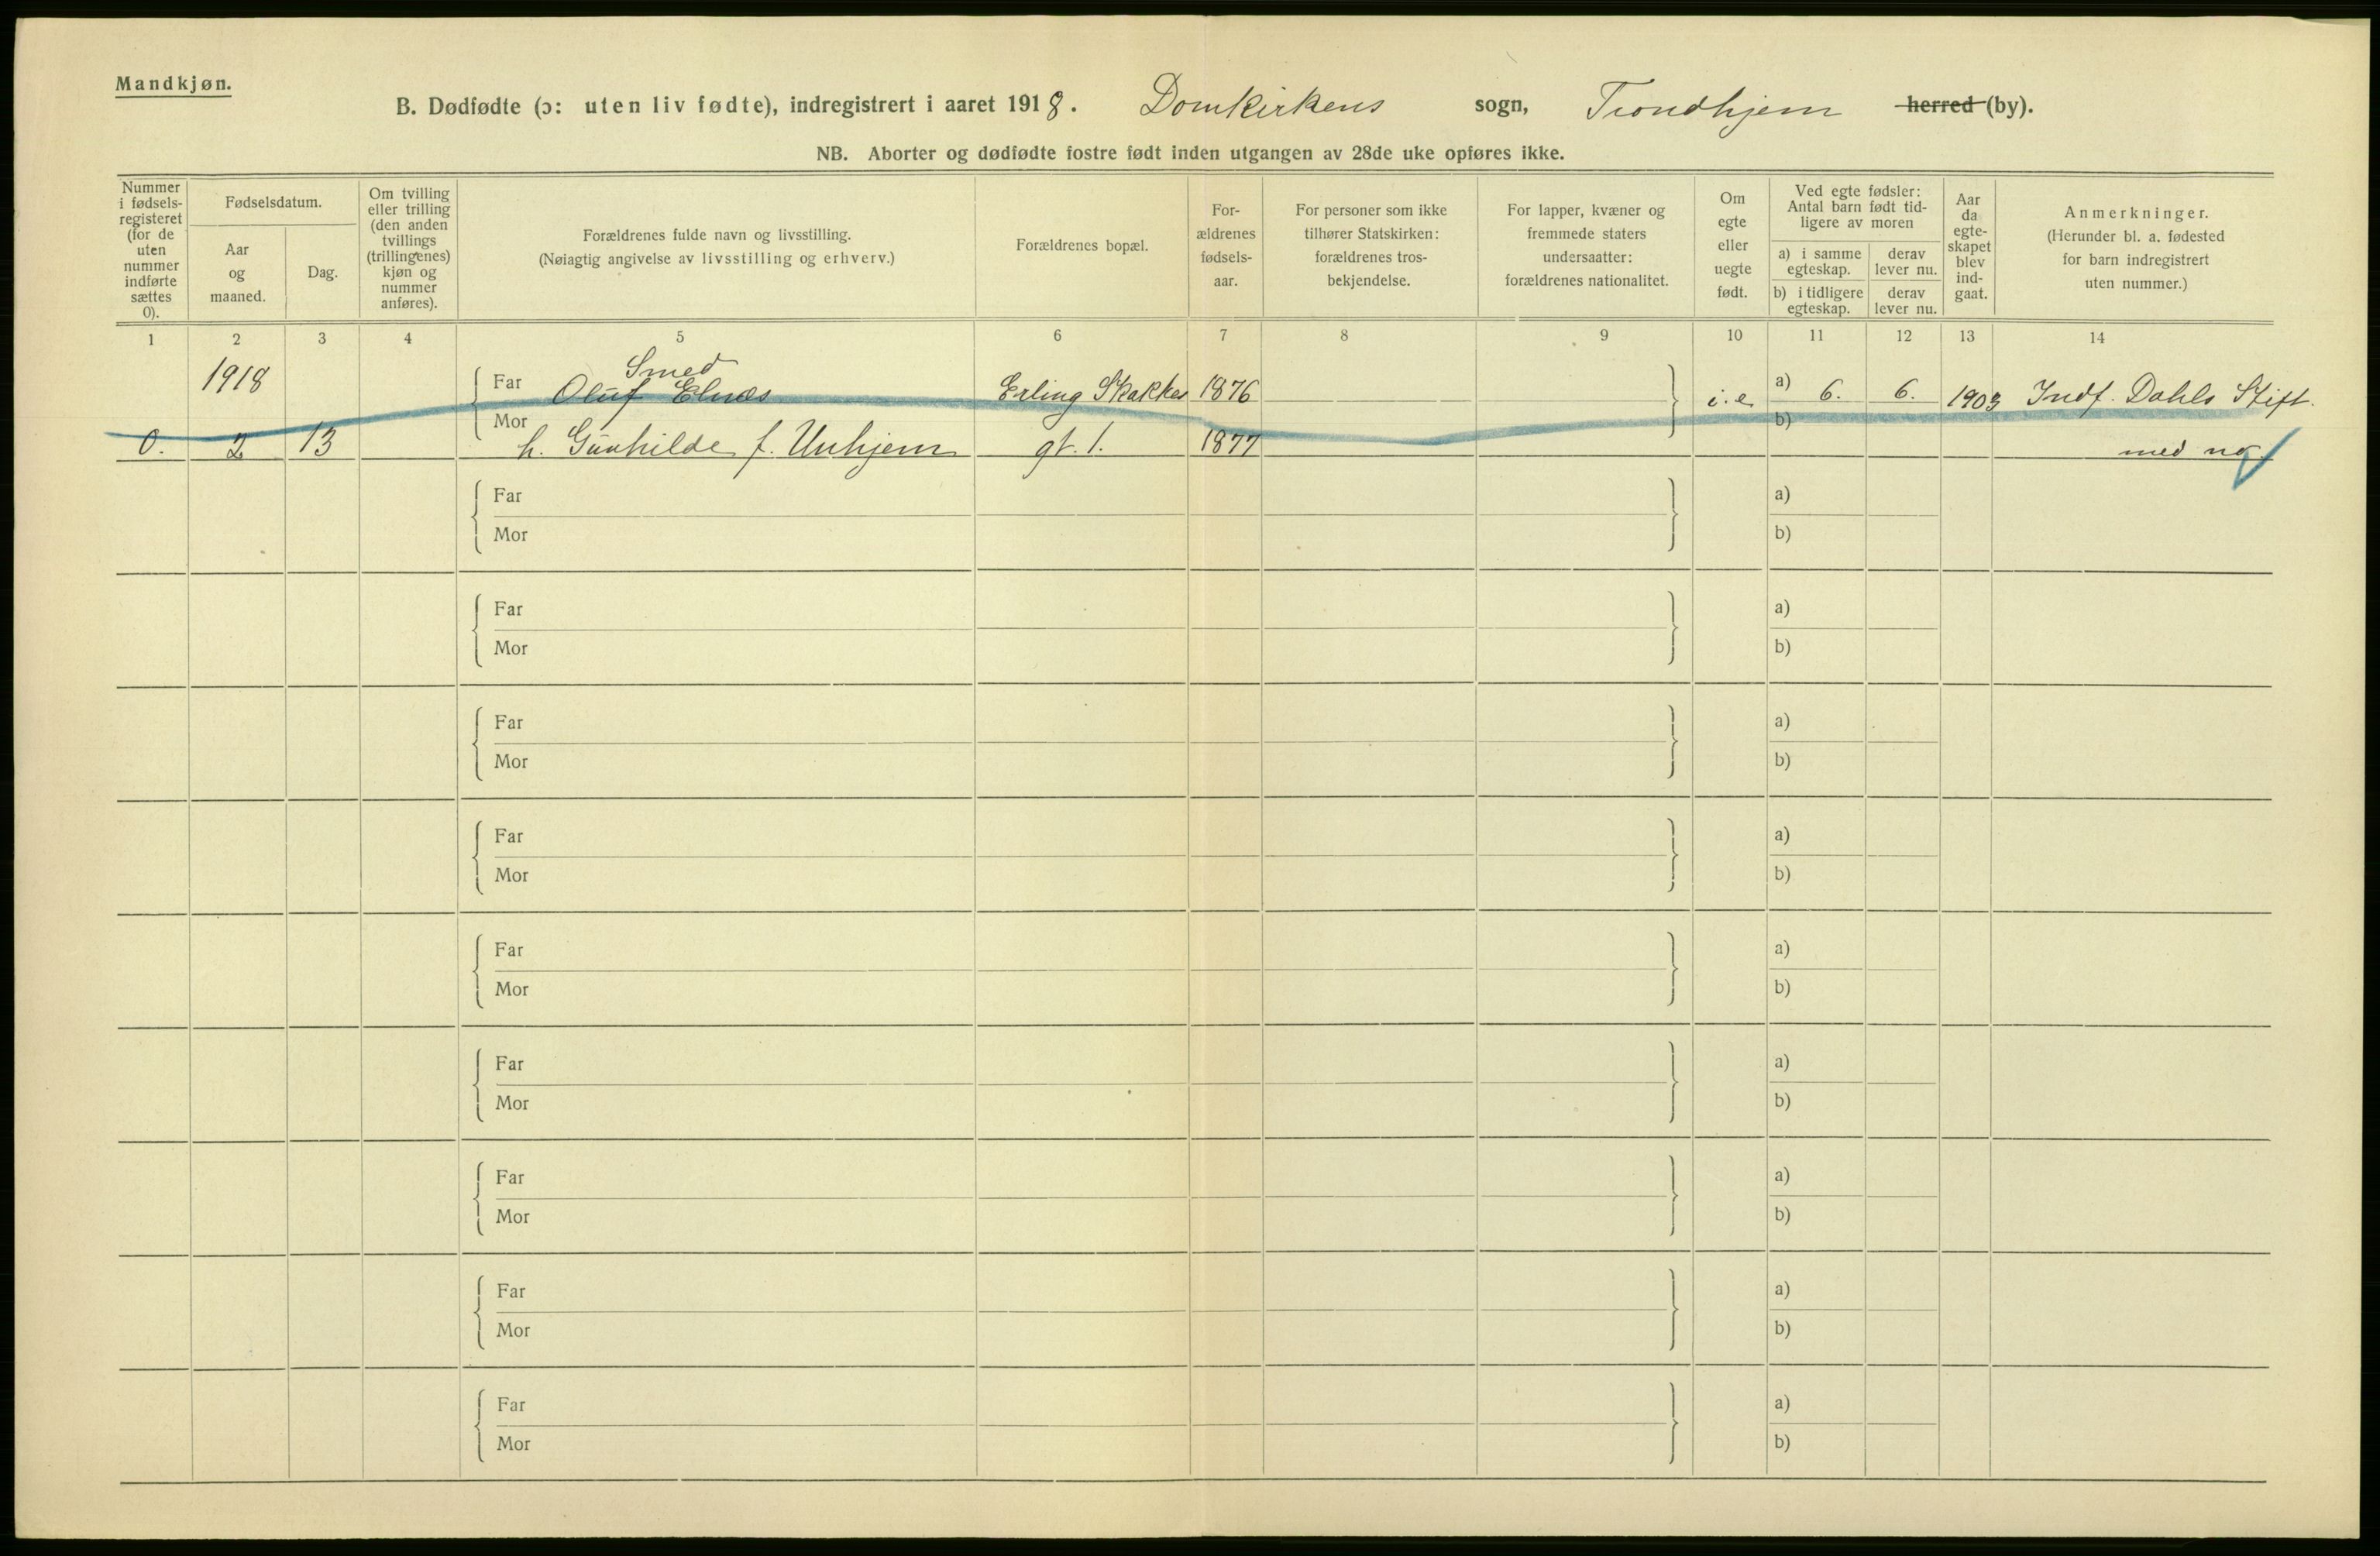 Mandkjøn.
B. Dødfødte (ɔ: uten liv fødte), indregistrert i aaret 1918. Domkirkens sogn, Trondhjem herred (by).
NB. Aborter og dødfødte fostre født inden utgangen av 28de uke opføres ikke.
Nummer i fødsels-registeret (for de uten nummer indførte sættes 0).
Fødselsdatum.
Aar og maaned.
Dag.
Om tvilling eller trilling (den anden tvillings (trillingenes) kjøn og nummer anføres).
Forældrenes fulde navn og livsstilling.
(Nøiagtig angivelse av livsstilling og erhverv.)
Forældrenes bopæl.
For-ældrenes fødsels-aar.
For personer som ikke tilhører Statskirken: forældrenes tros-bekjendelse.
For lapper, kvæner og fremmede staters undersaatter: forældrenes nationalitet.
Om egte eller uegte født.
Ved egte fødsler: Antal barn født tid-ligere av moren
a) i samme egteskap.
derav lever nu.
b) i tidligere egteskap.
derav lever nu.
Aar da egte-skapet blev ind-gaat.
Anmerkninger.
(Herunder bl. a. fødested for barn indregistrert uten nummer.)
1 2 3 4 5 6 7 8 9 10 11 12 13 14
Smed
1918 Far Oluf Elnæs Erling Skakkes 1876 i.e a) 6. 6. 1903 Indf. Dahls Stift.
Mor b)
0. 2 13 h. Gunhilde f. Unhjem gt. 1. 1877 med no.
Far a)
Mor b)
Far a)
Mor b)
Far a)
Mor b)
Far a)
Mor b)
Far a)
Mor b)
Far a)
Mor b)
Far a)
Mor b)
Far a)
Mor b)
Far a)
Mor b)